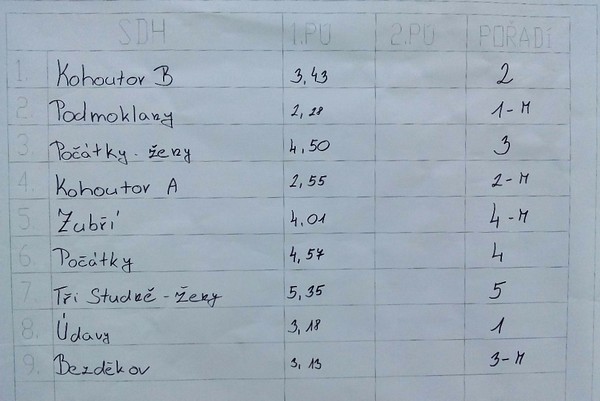 SDH 1.PÚ 2.PÚ POŘADÍ
1. Kohoutov B 3,43 2
2. Podmoklany 2,28 1-M
3. Počátky-ženy 4,50 3
4. Kohoutov A 2,55 2-M
5. Zubří 4,01 4-M
6. Počátky 4,57 4
7. Tři Studně-ženy 5,35 5
8. Údavy 3,18 1
9. Bezděkov 3,13 3-M